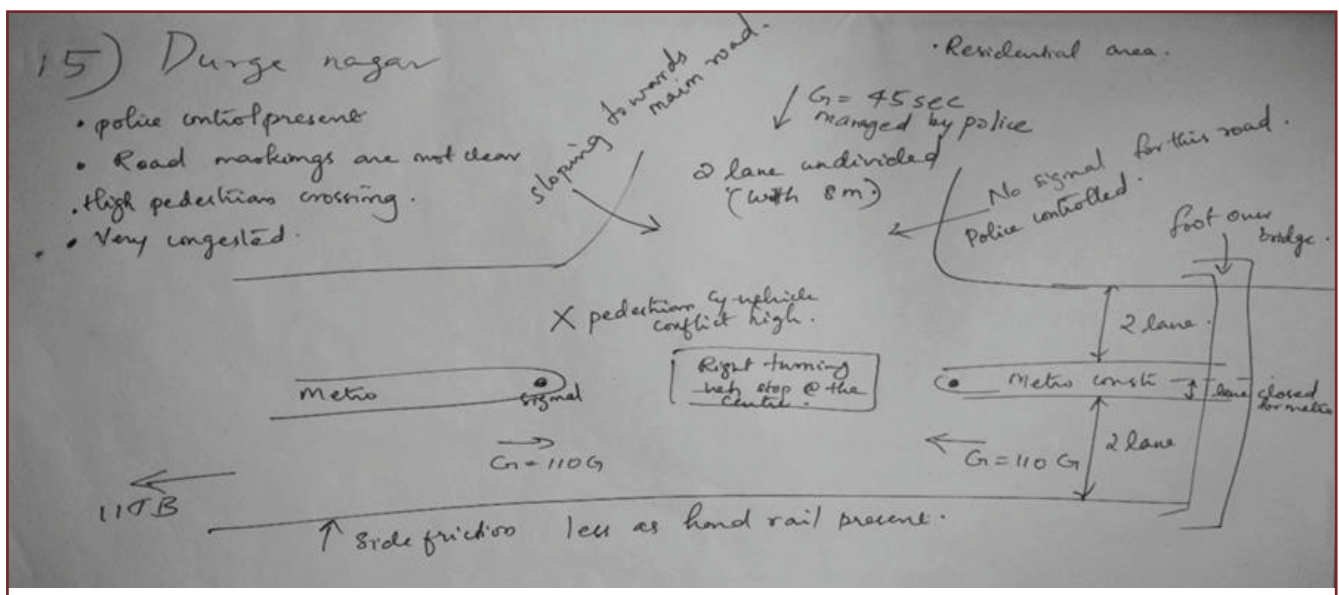 15) Durge nagar
• police control present
• Road markings are not clear
• High pedestrian crossing.
• Very congested.
sloping towards
main road.
• Residential area.
G = 45 sec
managed by police
2 lane undivided
(with 8m)
No signal for this road.
Police controlled.
foot over
bridge.
X pedestrian
vehicle
conflict high.
2 lane.
Metro
signal
Right turning
veh stop @ the
centre.
Metro constr
lane closed
for metro
G = 110 G
G = 110 G
2 lane
IITB
↑ Side friction less as hand rail present.